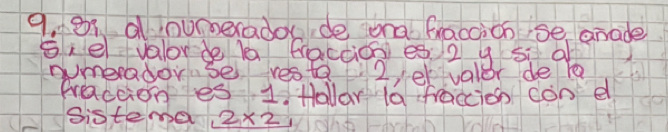 9. Si al numerador de una fracción se añade
5, el valor de la fracción es 2 y si al
numerador se resta 2, el valor de la
fracción es 1. Hallar la fracción con el
sistema 2x2